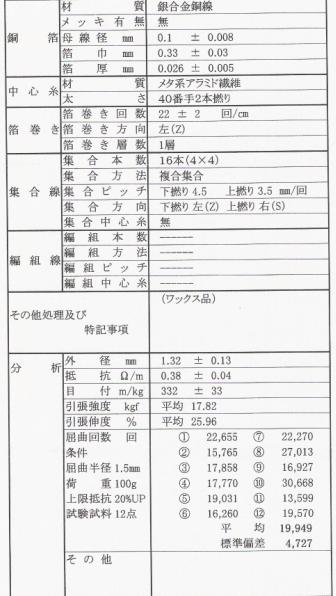 銅箔 材質 銀合金銅線
メッキ有無 無
母線径 mm 0.1 ± 0.008
箔巾 mm 0.33 ± 0.03
箔厚 mm 0.026 ± 0.005
中心糸 材質 メタ系アラミド繊維
太さ 40番手2本撚り
箔巻き 箔巻き回数 22 ± 2 回/cm
箔巻き方向 左(Z)
箔巻き層数 1層
集合線 集合本数 16本(4×4)
集合方法 複合集合
集合ピッチ 下撚り4.5 上撚り3.5 mm/回
集合方向 下撚り左(Z) 上撚り右(S)
集合中心糸 無
編組線 編組本数 ------
編組方法 ------
編組ピッチ ------
編組中心糸 ------
その他処理及び特記事項 (ワックス品)
分析 外径 mm 1.32 ± 0.13
抵抗 Ω/m 0.38 ± 0.04
目付 m/kg 332 ± 33
引張強度 kgf 平均 17.82
引張伸度 % 平均 25.96
屈曲回数 回 ① 22,655 ⑦ 22,270
条件 ② 15,765 ⑧ 27,013
屈曲半径1.5mm ③ 17,858 ⑨ 16,927
荷重100g ④ 17,770 ⑩ 30,668
上限抵抗20%UP ⑤ 19,031 ⑪ 13,599
試験試料12点 ⑥ 16,260 ⑫ 19,570
平均 19,949
標準偏差 4,727
その他